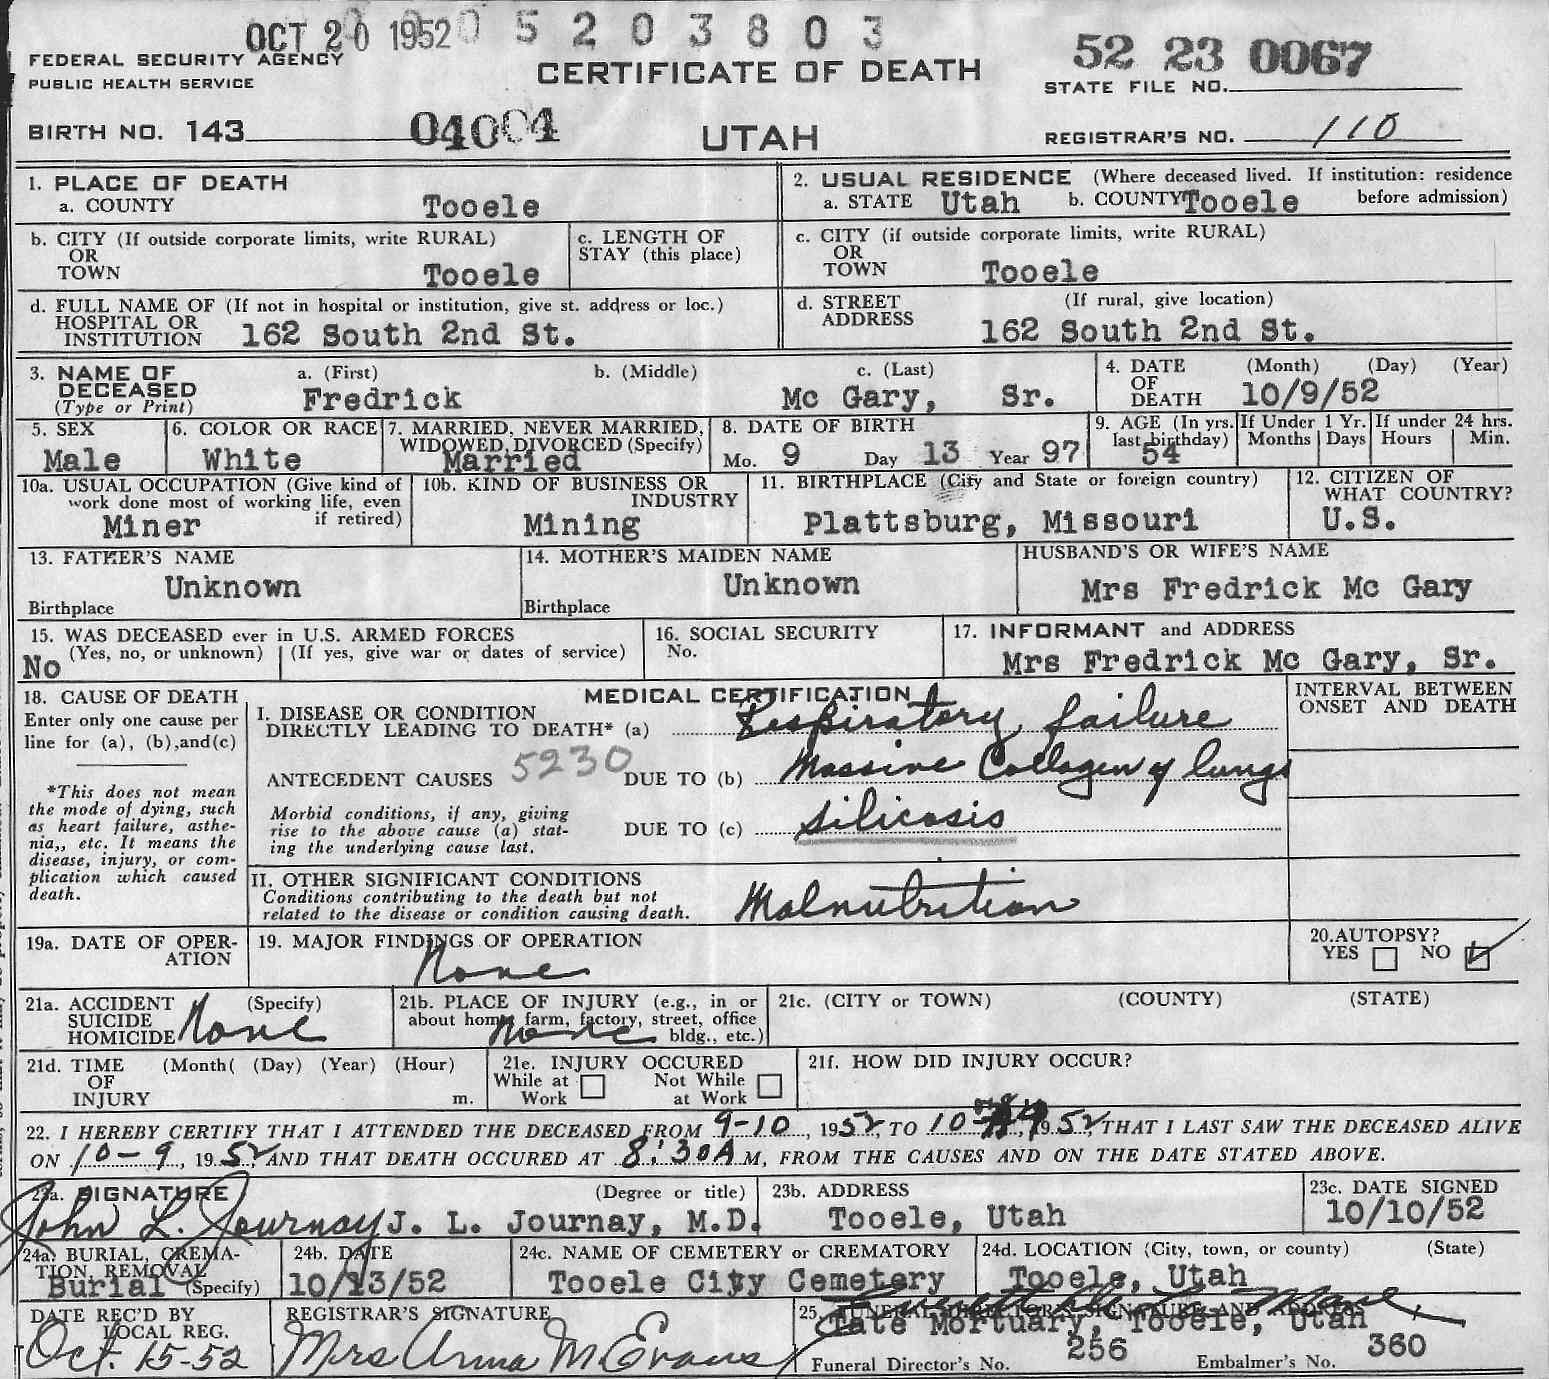 OCT 20 1952 5 2 0 3 8 0 3
FEDERAL SECURITY AGENCY
PUBLIC HEALTH SERVICE
CERTIFICATE OF DEATH
52 23 0067
STATE FILE NO.
BIRTH NO. 143 04004
UTAH
REGISTRAR'S NO. 110
1. PLACE OF DEATH
a. COUNTY Tooele
2. USUAL RESIDENCE (Where deceased lived. If institution: residence before admission)
a. STATE Utah b. COUNTY Tooele
b. CITY (If outside corporate limits, write RURAL)
OR
TOWN Tooele
c. LENGTH OF
STAY (this place)
c. CITY (if outside corporate limits, write RURAL)
OR
TOWN Tooele
d. FULL NAME OF (If not in hospital or institution, give st. address or loc.)
HOSPITAL OR
INSTITUTION 162 South 2nd St.
d. STREET (If rural, give location)
ADDRESS 162 South 2nd St.
3. NAME OF
DECEASED
(Type or Print)
a. (First) b. (Middle) c. (Last)
Fredrick Mc Gary, Sr.
4. DATE (Month) (Day) (Year)
OF
DEATH 10/9/52
5. SEX
Male
6. COLOR OR RACE
White
7. MARRIED, NEVER MARRIED,
WIDOWED, DIVORCED (Specify)
Married
8. DATE OF BIRTH
Mo. 9 Day 13 Year 97
9. AGE (In yrs.
last birthday)
54
If Under 1 Yr.
Months Days
If under 24 hrs.
Hours Min.
10a. USUAL OCCUPATION (Give kind of
work done most of working life, even
if retired)
Miner
10b. KIND OF BUSINESS OR
INDUSTRY
Mining
11. BIRTHPLACE (City and State or foreign country)
Plattsburg, Missouri
12. CITIZEN OF
WHAT COUNTRY?
U.S.
13. FATHER'S NAME
Unknown
Birthplace
14. MOTHER'S MAIDEN NAME
Unknown
Birthplace
HUSBAND'S OR WIFE'S NAME
Mrs Fredrick Mc Gary
15. WAS DECEASED ever in U.S. ARMED FORCES
(Yes, no, or unknown) (If yes, give war or dates of service)
No
16. SOCIAL SECURITY
No.
17. INFORMANT and ADDRESS
Mrs Fredrick Mc Gary, Sr.
18. CAUSE OF DEATH
Enter only one cause per
line for (a), (b), and (c)
*This does not mean
the mode of dying, such
as heart failure, asthe-
nia,, etc. It means the
disease, injury, or com-
plication which caused
death.
MEDICAL CERTIFICATION
I. DISEASE OR CONDITION
DIRECTLY LEADING TO DEATH* (a) Respiratory failure
ANTECEDENT CAUSES 5230 DUE TO (b) Massive Collagen of lungs
Morbid conditions, if any, giving
rise to the above cause (a) stat-
ing the underlying cause last.
DUE TO (c) silicosis
II. OTHER SIGNIFICANT CONDITIONS
Conditions contributing to the death but not
related to the disease or condition causing death.
Malnutrition
INTERVAL BETWEEN
ONSET AND DEATH
19a. DATE OF OPER-
ATION
19. MAJOR FINDINGS OF OPERATION
None
20. AUTOPSY?
YES NO
21a. ACCIDENT (Specify)
SUICIDE
HOMICIDE None
21b. PLACE OF INJURY (e.g., in or
about home, farm, factory, street, office
bldg., etc.)
None
21c. (CITY or TOWN) (COUNTY) (STATE)
21d. TIME (Month( (Day) (Year) (Hour)
OF
INJURY m.
21e. INJURY OCCURED
While at Work Not While at Work
21f. HOW DID INJURY OCCUR?
22. I HEREBY CERTIFY THAT I ATTENDED THE DECEASED FROM 9-10, 1952, TO 10-9, 1952, THAT I LAST SAW THE DECEASED ALIVE
ON 10-9, 1952, AND THAT DEATH OCCURED AT 8:30A M, FROM THE CAUSES AND ON THE DATE STATED ABOVE.
23a. SIGNATURE (Degree or title)
John L. Journay J. L. Journay, M.D.
23b. ADDRESS
Tooele, Utah
23c. DATE SIGNED
10/10/52
24a. BURIAL, CREMA-
TION, REMOVAL
Burial (Specify)
24b. DATE
10/13/52
24c. NAME OF CEMETERY or CREMATORY
Tooele City Cemetery
24d. LOCATION (City, town, or county) (State)
Tooele, Utah
DATE REC'D BY
LOCAL REG.
Oct. 15-52
REGISTRAR'S SIGNATURE
Mrs Anna M Evans
25. FUNERAL DIRECTOR'S SIGNATURE AND ADDRESS
Tate Mortuary, Tooele, Utah
Funeral Director's No. 256 Embalmer's No. 360